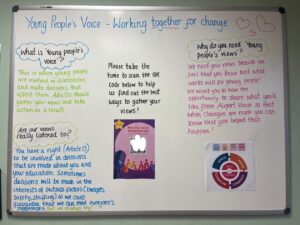 Young People's Voice - Working together for change
What is Young people's
voice?
This is when young people
are involved in discussions
and make decisions that
affect them. Adults should
gather your views and take
action as a result.
Are our views
really listened to?
You have a right (Article 12)
to be involved in decisions
that are made about you and
your education. Sometimes
decisions will be made in the
interests of outside factors (budgets,
safety, staffing) so we can't
guarantee that we can meet everyone's
Please take the
time to scan the QR
code below to help
us find out the best
ways to gather your
views!
Why do you need Young
people's views?
We need your views because we
feel that you know best what
works well for young people!
We want you to have the
opportunity to share what you'd
like from
so that
when changes are made you can
know that you helped that
happen!